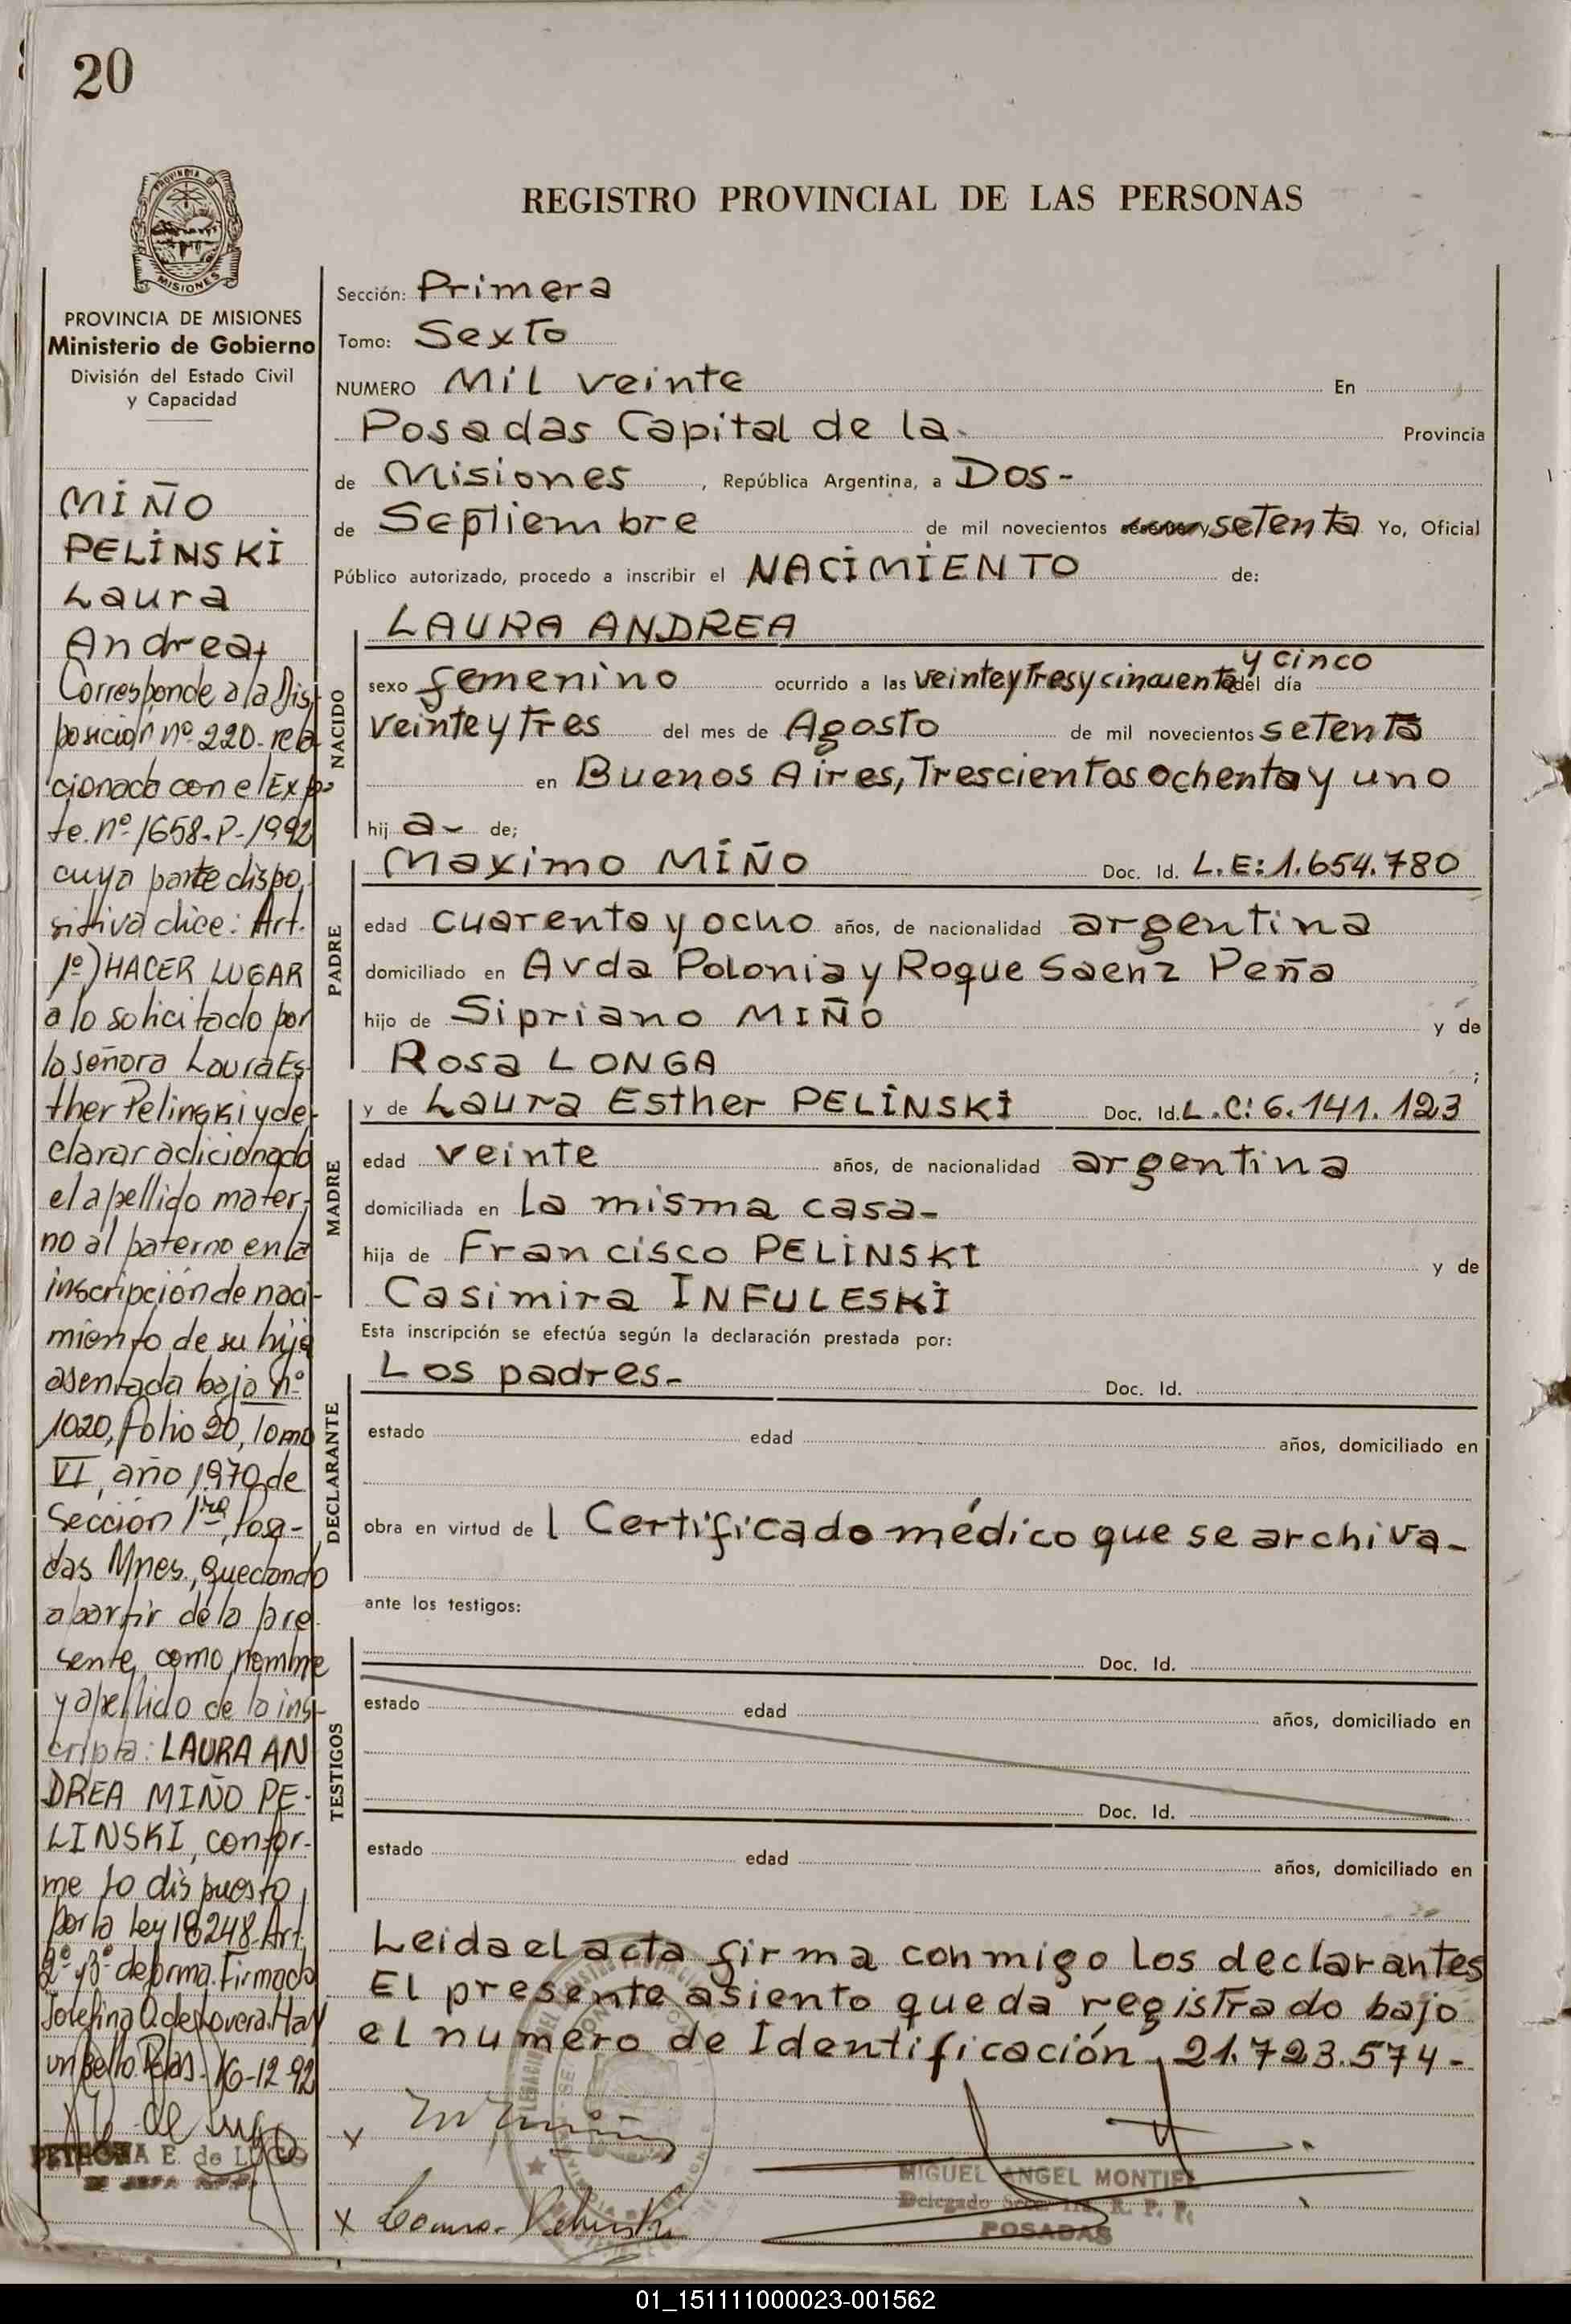 20
PROVINCIA DE
MISIONES
REGISTRO PROVINCIAL DE LAS PERSONAS
PROVINCIA DE MISIONES
Ministerio de Gobierno
División del Estado Civil
y Capacidad
MIÑO
PELINSKI
Laura
Andrea
Corresponde a la Dis-
posición nº 220-rela
cionada con el Exp
te. nº 1658-P-1992
cuya parte dispo
sitiva dice: Art.
1º) HACER LUGAR
a lo solicitado por
la señora Laura Es-
ther Pelinski y de-
clarar adicionado
el apellido mater-
no al paterno en la
inscripción de naci-
miento de su hija
asentada bajo nº
1020, folio 20, Tomo
VI, año 1970 de
Sección 1ra, Posa-
das Mnes., quedando
a partir de la pre
sente, como nombre
y apellido de la ins-
cripta: LAURA AN
DREA MIÑO PE-
LINSKI, confor-
me lo dispuesto
por la Ley 18248-Art.
2º y 3º de forma. Firmado
Josefina Q de Lovera. Hay
un sello. Pdas. 16-12-92
PETRONA E. de LUGO
Sección: Primera
Tomo: Sexto
NUMERO Mil veinte En
Posadas Capital de la Provincia
de Misiones, República Argentina, a Dos-
de Septiembre de mil novecientos setenta Yo, Oficial
Público autorizado, procedo a inscribir el NACIMIENTO de:
NACIDO
LAURA ANDREA
y cinco
sexo femenino ocurrido a las veinte y tres y cincuenta del día
veinte y tres del mes de Agosto de mil novecientos setenta
en Buenos Aires, Trescientos ochenta y uno
hij a- de;
PADRE
Maximo MIÑO Doc. Id. L.E: 1.654.780
edad cuarenta y ocho años, de nacionalidad argentina
domiciliado en Avda Polonia y Roque Saenz Peña
hijo de Sipriano MIÑO y de
Rosa LONGA ;
MADRE
y de Laura Esther PELINSKI Doc. Id. L.C: 6.141.123
edad veinte años, de nacionalidad argentina
domiciliada en la misma casa-
hija de Francisco PELINSKI y de
Casimira INFULESKI
Esta inscripción se efectúa según la declaración prestada por:
DECLARANTE
Los padres- Doc. Id.
estado edad años, domiciliado en
obra en virtud de l Certificado médico que se archiva-
ante los testigos:
TESTIGOS
Doc. Id.
estado edad años, domiciliado en
Doc. Id.
estado edad años, domiciliado en
Leida el acta firma conmigo los declarantes
El presente asiento queda registrado bajo
el numero de Identificación, 21.723.574-
x
x Laura Pelinski
MIGUEL ANGEL MONTIEL
Delegado Secc. 1ra. R. P. P.
POSADAS
01_151111000023-001562